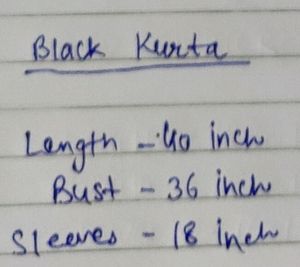 Black Kurta
Length - 40 inch
Bust - 36 inch
Sleeves - 18 inch